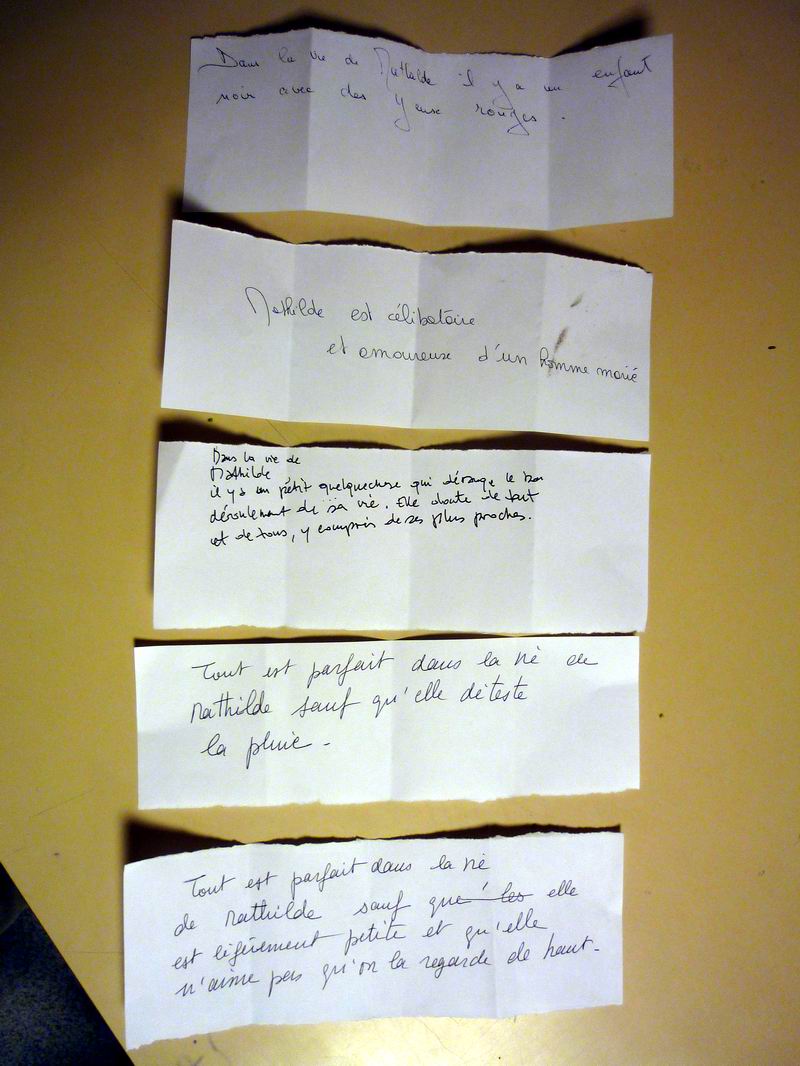 Dans la vie de Mathilde il y a un enfant
noir avec des yeux rouges.
Mathilde est célibataire
et amoureuse d'un homme marié
Dans la vie de
Mathilde
il y a un petit quelquechose qui dérange le bon
déroulement de sa vie. Elle doute de tout
et de tous, y compris de ses plus proches.
Tout est parfait dans la vie de
Mathilde sauf qu'elle déteste
la pluie -
Tout est parfait dans la vie
de Mathilde sauf que les elle
est légèrement petite et qu'elle
n'aime pas qu'on la regarde de haut -